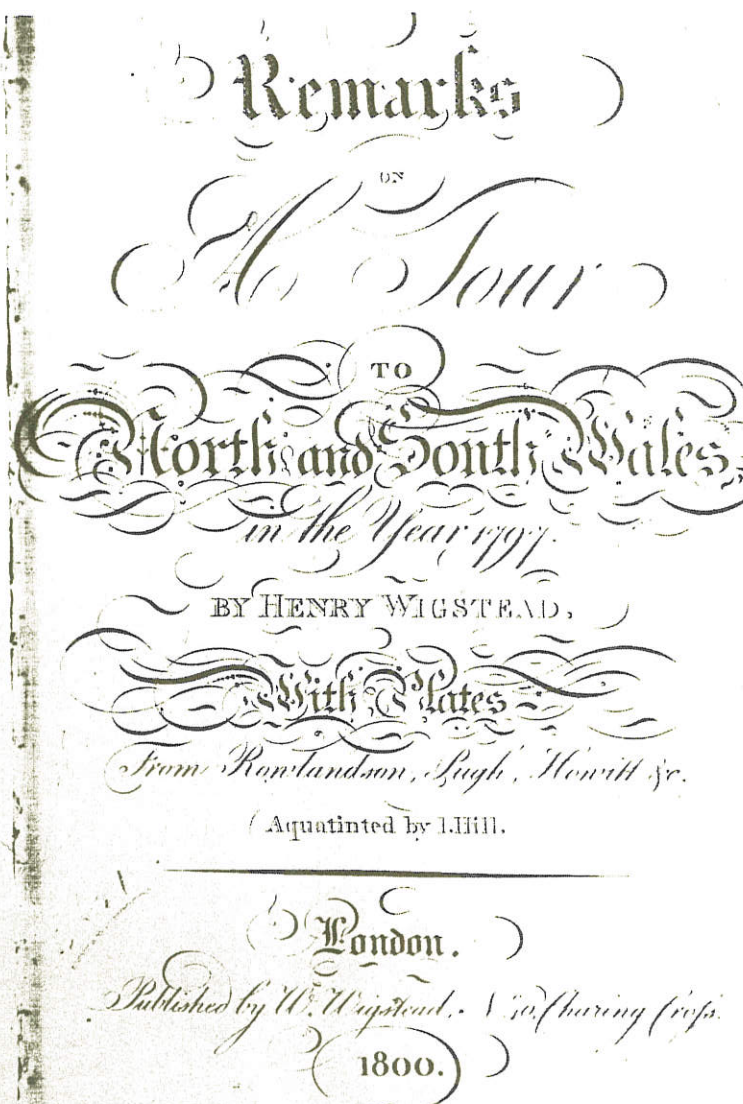 Remarks
ON
A Tour
TO
North and South Wales,
in the Year 1797.
BY HENRY WIGSTEAD,
With Plates
From Rowlandson, Pugh, Howitt &c.
Aquatinted by I. Hill.
London.
Published by W. Wigstead, Charing Cross.
1800.